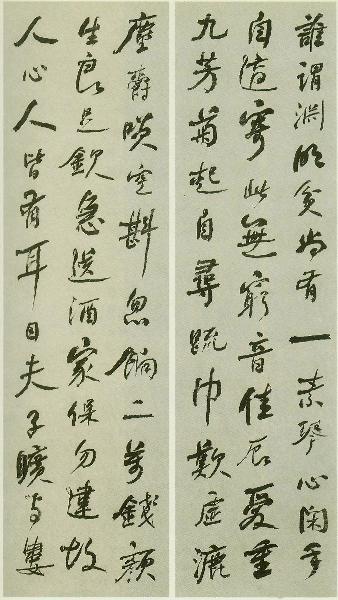 誰謂淵明貧尚有一素琴心閑手
自適寄此無窮音佳辰愛重
九芳菊起自尋疏巾歎虛漉
塵爵咲空斟忽餉二萬錢顏
生良足欽急送酒家保勿違故
人心人皆有耳目夫子曠与婁